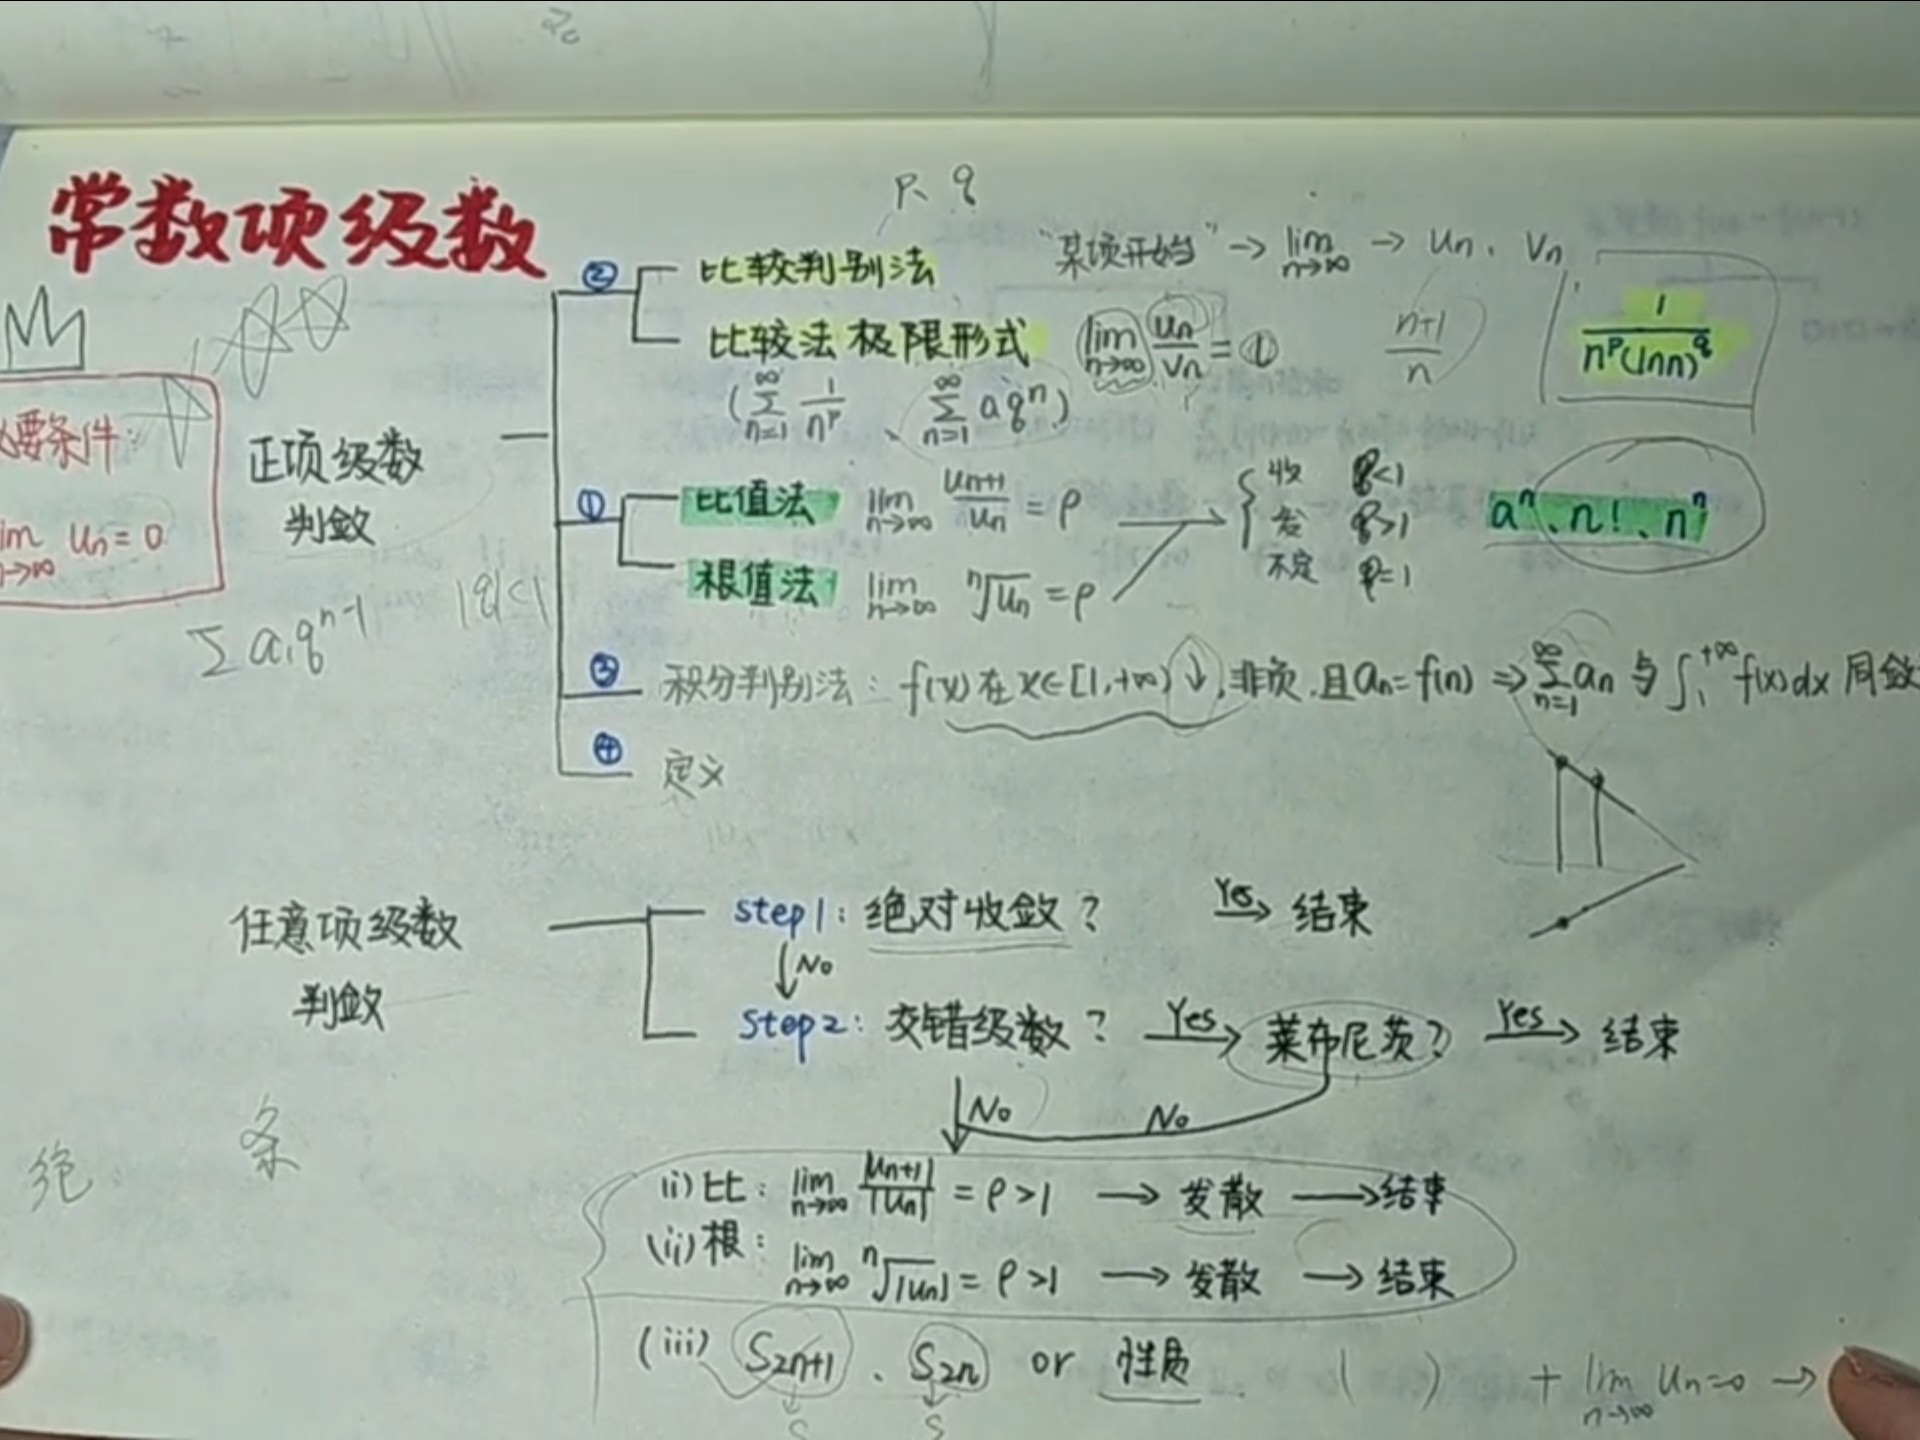 常数项级数
P、q
② 比较判别法 "某项开始" → lim n→∞ → un、vn
比较法极限形式 lim n→∞ un/vn = ① n+1/n 1/n^p(lnn)^q
(∑n=1^∞ 1/n^p 、 ∑n=1^∞ aq^n)
要条件:
lim n→∞ un=0
正项级数
判敛
① 比值法 lim n→∞ un+1/un = ρ
根值法 lim n→∞ ⁿ√un = ρ
收 ρ<1
发 ρ>1
不定 ρ=1
a^n、n!、n^n
∑a₁q^n-1 |q|<1
③ 积分判别法: f(x)在x∈[1,+∞)↓,非负,且an=f(n) ⇒ ∑n=1^∞ an 与 ∫₁^+∞ f(x)dx 同敛
④ 定义
任意项级数
判敛
step1: 绝对收敛? Yes → 结束
↓No
step2: 交错级数? Yes → 莱布尼茨? Yes → 结束
↓No No
绝 条
(i)比: lim n→∞ |un+1|/|un| = ρ>1 → 发散 → 结束
(ii)根: lim n→∞ ⁿ√|un| = ρ>1 → 发散 → 结束
(iii) S2n+1 、 S2n or 性质 ( ) + lim n→∞ un=0 →
S S